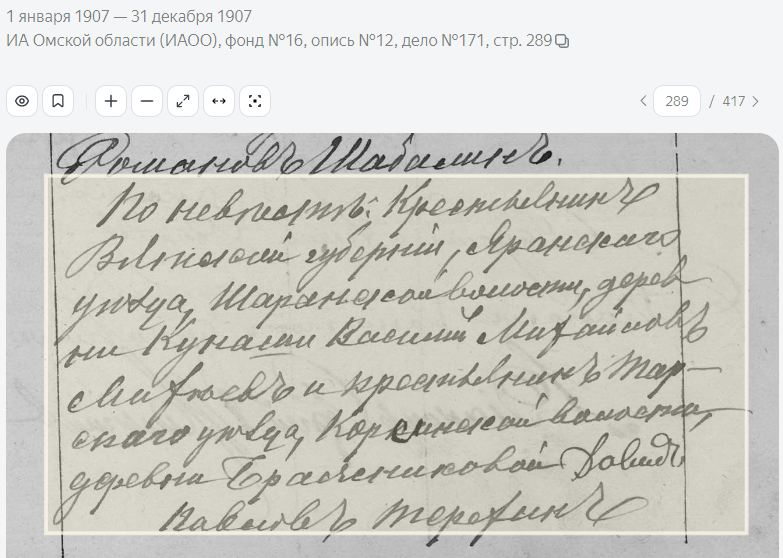 1 января 1907 — 31 декабря 1907
ИА Омской области (ИАОО), фонд №16, опись №12, дело №171, стр. 289
289 / 417
Романовъ Шабалинъ.
По невѣстѣ: Крестьянинъ
Вятской губерніи, Яранскаго
уѣзда, Шаранской волости, дерев
ни Василій Михайловъ
и крестьянинъ Тар-
скаго уѣзда, Корсинской волости,
деревни Давидъ
Павловъ